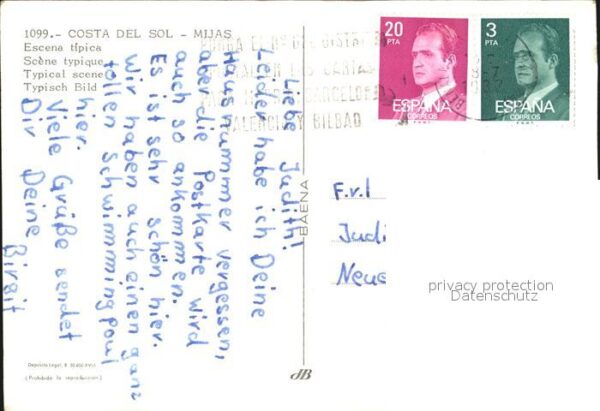 1099.- COSTA DEL SOL - MIJAS
Escena típica
Scène typique
Typical scene
Typisch Bild
Liebe Judith!
Leider habe ich Deine
Hausnummer vergessen,
aber die Postkarte wird
auch so ankommen.
Es ist sehr schön hier.
Wir haben auch einen ganz
tollen Schwimmingpoul
hier.
Viele Grüße sendet
Dir Deine Birgit
BAENA
20
PTA
ESPAÑA
CORREOS
3
PTA
ESPAÑA
CORREOS
PONGA EL Nº DEL DISTRITO
VALENCIA Y BILBAO
Frl
Judi
Neue
privacy protection
Datenschutz
(Prohibida la reproducción)
dB